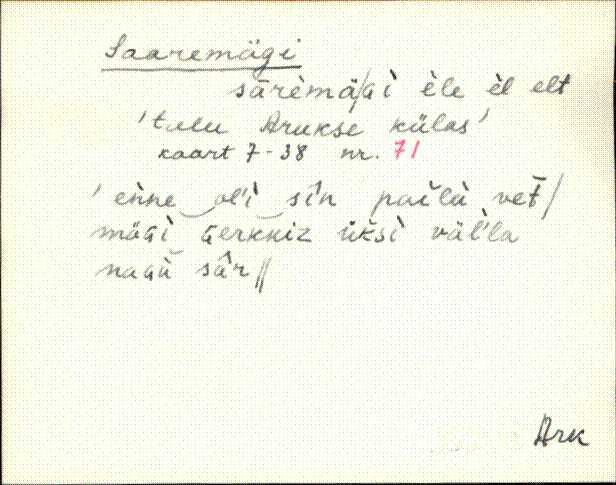 Saaremägi
sārèmä/ɢì èle èl elt
'talu Arukse külas'
kaart 7-38 nr. 71
'enne ol'ì sîn pailù vet/
mäɢì ɢerkkiz üksì väl'la
naɢù sâr//
Ark